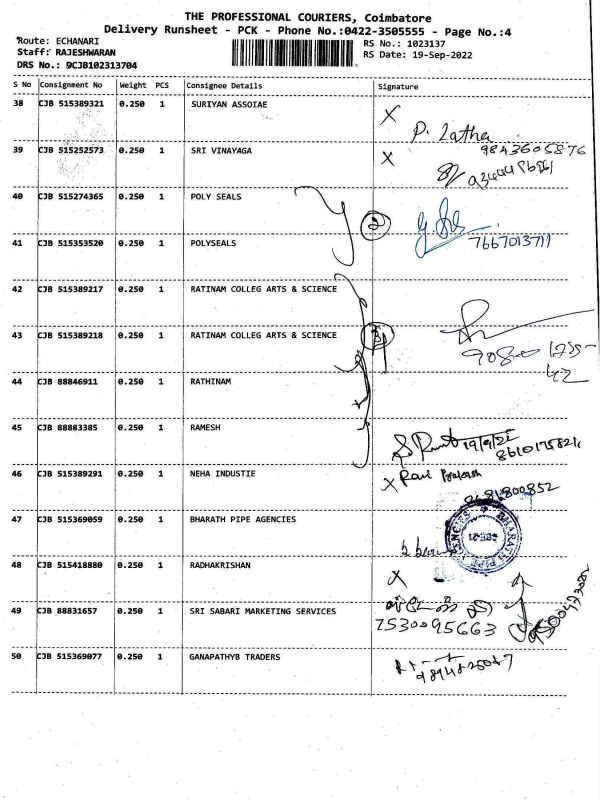 THE PROFESSIONAL COURIERS, Coimbatore
Delivery Runsheet - PCK - Phone No.:0422-3505555 - Page No.:4
Route: ECHANARI
RS No.: 1023137
Staff: RAJESHWARAN
RS Date: 19-Sep-2022
DRS No.: 9CJB102313704
S No Consignment No Weight PCS Consignee Details Signature
38 CJB 515389321 0.250 1 SURIYAN ASSOIAE X
P. Latha
9843605876
39 CJB 515252573 0.250 1 SRI VINAYAGA X
40 CJB 515274365 0.250 1 POLY SEALS
2
41 CJB 515353520 0.250 1 POLYSEALS 7667013711
42 CJB 515389217 0.250 1 RATINAM COLLEG ARTS & SCIENCE
43 CJB 515389218 0.250 1 RATINAM COLLEG ARTS & SCIENCE
44 CJB 88846911 0.250 1 RATHINAM
45 CJB 88883385 0.250 1 RAMESH
19/9/22
46 CJB 515389291 0.250 1 NEHA INDUSTIE X
47 CJB 515369059 0.250 1 BHARATH PIPE AGENCIES
BHARATH PIPE
48 CJB 515418880 0.250 1 RADHAKRISHAN X
49 CJB 88831657 0.250 1 SRI SABARI MARKETING SERVICES
7530095663
50 CJB 515369077 0.250 1 GANAPATHYB TRADERS